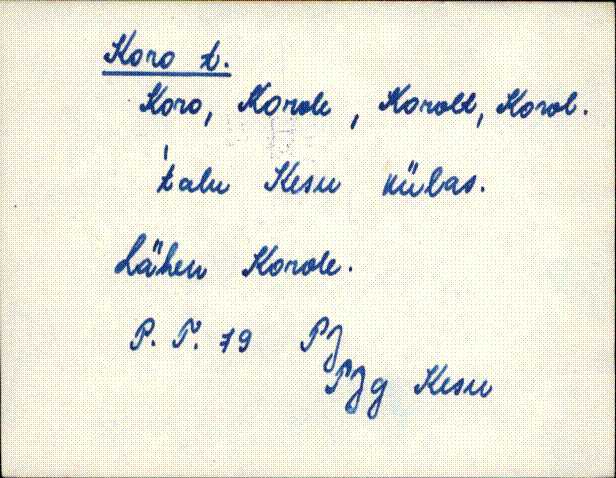 Koro t.
Koro, Korole, Korolt, Korol.
'talu Kesu külas.
Lähen Korole.
P. T. 79 PJ
PJg Kesu